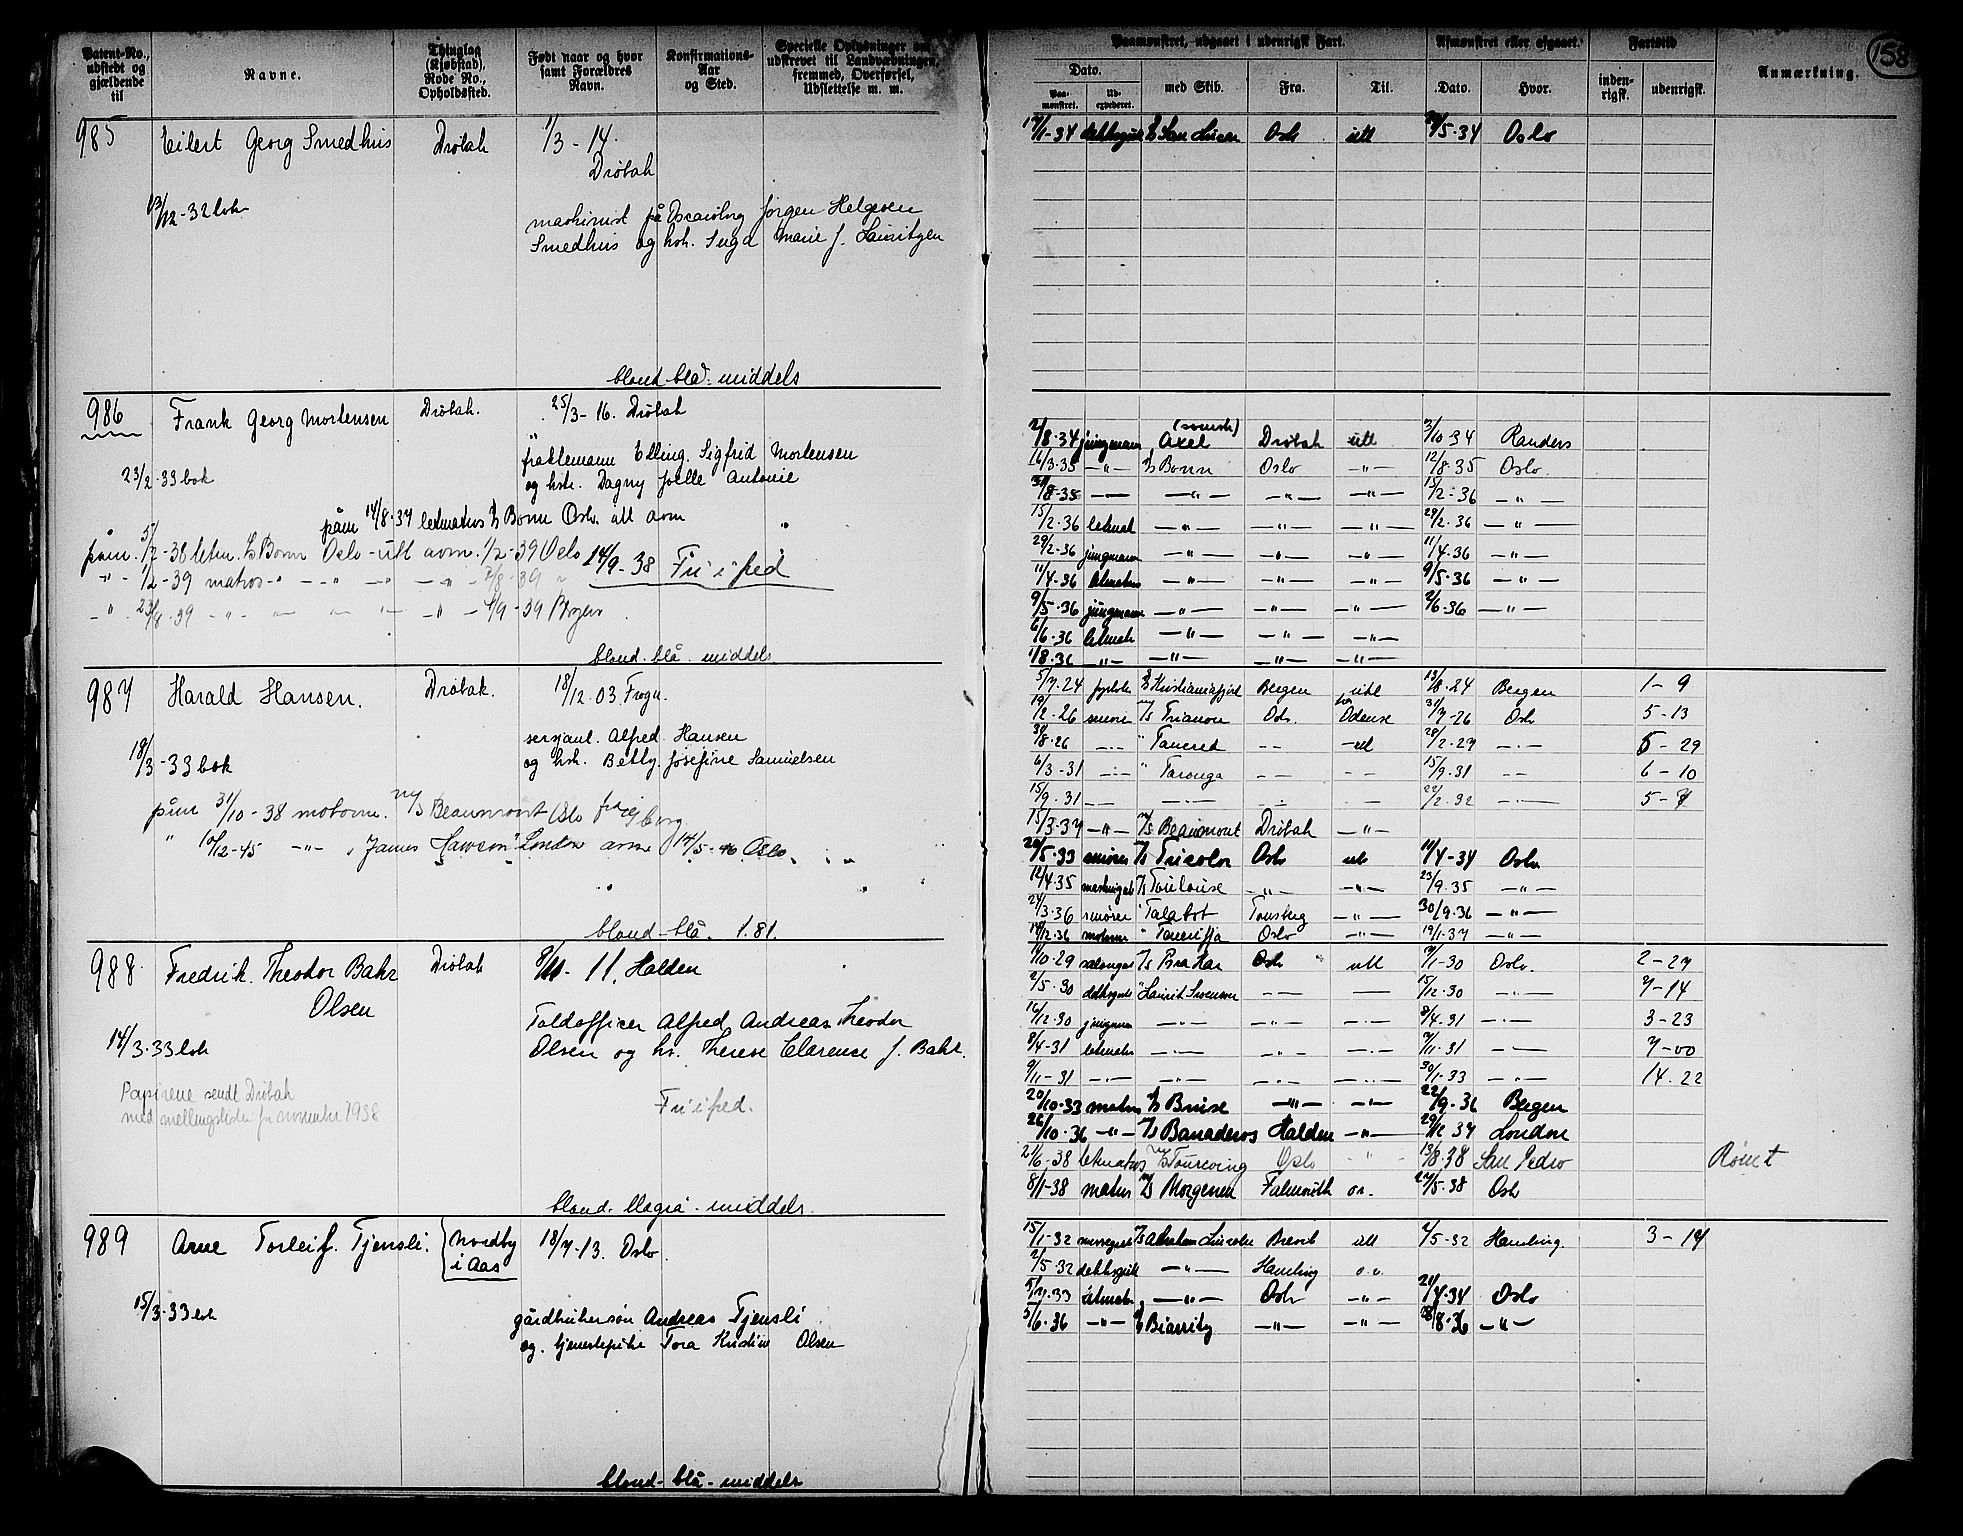 Patent-No., udstedt og gjældende til
Navne.
Thinglag (Kjøbstad), Rode No., Opholdssted.
Født naar og hvor samt Forældres Navn.
Konfirmations-Aar og Sted.
Specielle Oplysninger om udskrevet til Landværningen, fremmed, Overførsel, Udslettelse m. m.
Paamønstret, udgaaet i udenrigsk Fart.
Afmønstret eller afgaaet.
Fartstid
Anmærkning.
158
Dato.
Paa-mønstret.
Ud-expederet.
med Skib.
Fra.
Til.
Dato.
Hvor.
inden-rigsk.
udenrigsk.
985 Eilert Georg Smedhus Drøbak 1/3 - 14.
Drøbak
13/12 - 32 bok
maskinist på Oscarsborg Jørgen Helgesen
Smedhus og hst. Inga Marie f. Lauritzen
blond - blå - middels
Oslo utl 5-34 Oslo
986 Frank Georg Mortensen Drøbak. 25/3 - 16. Drøbak
23/2 - 33 bok
Elling Sigfrid Mortensen
og hst. Dagny Joelle Antonie
påm 14/8-37 letmatros Bonn Oslo utl avm
påm. 5/7 - 38 letm. Bonn Oslo - utl avm. 1/2 - 39 Oslo
14/9 - 38 Fri i fred
-"- 1/2 - 39 matros -"- -"- -"- -"- 7/8 - 39 "
-"- 23/8 - 39 -"- -"- -"- -"- 4/9 - 39
blond - blå - middels
2/8-34 jungmann Axel (svensk) Drøbak utl 3/10-34 Randers
16/3-35 -"- Bonn Oslo -"- 12/8-35 Oslo
8-35 -"- -"- -"- -"- 15/2-36 -"-
15/2-36 letmat -"- -"- -"- 29/2-36 -"-
29/2-36 jungmann -"- -"- -"- 11/4-36 -"-
11/4-36 letmatros -"- -"- -"- 9/5-36 -"-
9/5-36 jungmann -"- -"- -"- 2/6-36 -"-
6/6-36 letmat -"- -"- -"-
1/8-36 -"- -"- -"- -"-
987 Harald Hansen. Drøbak. 18/12. 03 Frogn.
18/3 - 33 bok
sersjant. Alfred Hansen
og hst. Betty Josefine Samuelsen
påm 31/10 - 38 motorm. m/s Beaumont Oslo
" 10/12 - 45 -"- James Lawson London avm 14/5-46 Oslo
blond - blå. 1.81.
5/7-24 Kristianiafjord Bergen utl 13/8-24 Bergen 1 - 9
19/2-26 m/s Trianon Oslo Odense 31/7-26 Oslo 5 - 13
8-26 -"- " Tancred -"- utl 28/2-27 -"- 5 - 29
6/3-31 -"- " Taronga -"- -"- 15/9-31 -"- 6 - 10
15/9-31 -"- -"- -"- -"- 22/2-32 -"- 5 - 7
15/3-37 -"- m/s Beaumont Drøbak -"-
5-33 smører m/s Tricolor Oslo utl 4-34 Oslo
12/4-35 m/s Toulouse -"- -"- 23/9-35 -"-
24/3-36 smører " Talabot Tønsberg -"- 30/9-36 -"-
12-36 motorm " Teneriffa Oslo -"- 19/1-37 -"-
988 Fredrik Theodor Bahr Drøbak 11. Halden
Olsen
14/3-33 bok
Toldofficer Alfred Andreas Theodor
Olsen og hst. Therese Clarence f. Bahr.
Papirene sendt Drøbak
november 1938
Fri i fred.
blond. blågrå - middels.
10-29 Oslo utl 1-30 Oslo. 2 - 27
2/5-30 dekksgutt " Laurits Swenson -"- -"- 15/12-30 -"- 7 - 14
16/12-30 jungmann -"- -"- -"- 8/4-31 -"- 3 - 23
8/4-31 letmatr -"- -"- -"- 11-31 -"- 7 - 00
9/11-31 -"- -"- -"- -"- 30/1-33 -"- 14. 22
20/10-33 matros Bruse -"- -"- 22/9-36 Bergen
26/10-36 -"- m/s Banaderos Halden -"- 29/12 37 London
21/6-38 letmatros Oslo -"- 13/8-38 San Pedro Rømt
8/1-38 matros m/s Morgenen Falmouth 5-38 Oslo
989 Arne Torleif. Tjensli. Nordby 18/7-13. Oslo.
i Aas
15/3-33 bok
Andreas Tjensli
og. tjenestepike Tora Kristine Olsen
blond - blå - middels
15/1-32 Abraham Lincoln Brevik utl 5-32 Hamburg. 3 - 14
2/5-32 dekksgutt -"- Hamburg
5/7-33 letmatr. -"- Oslo -"- 4-34 Oslo
5/6-36 -"- Biarritz -"- -"- 18/8-36 -"-